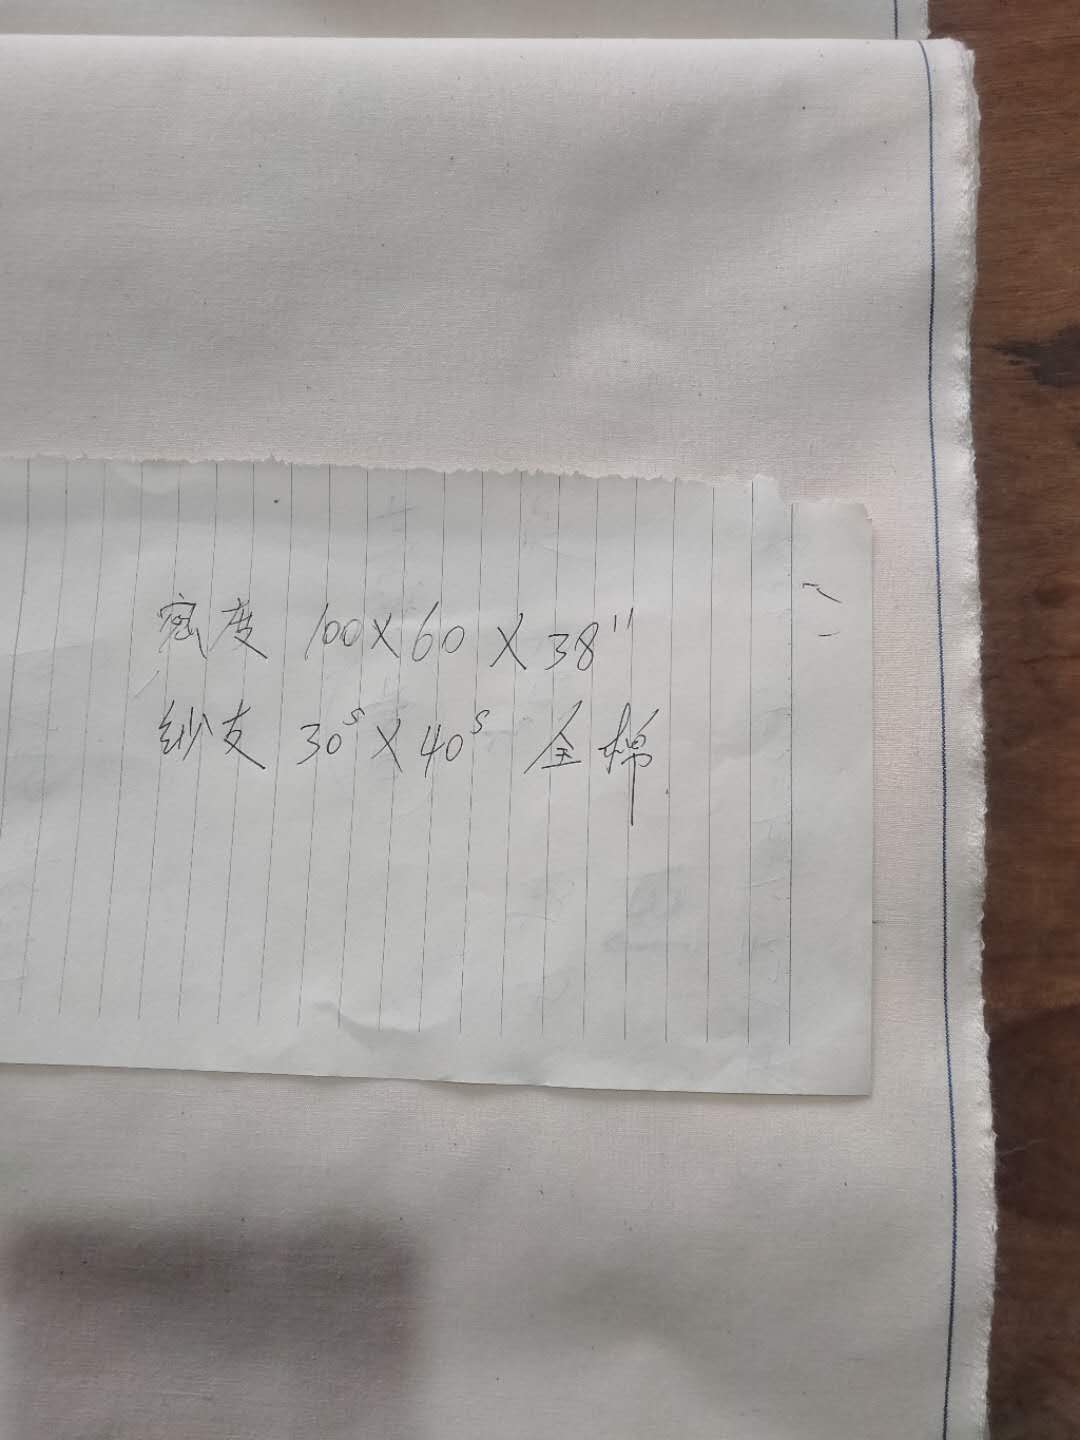 密度 100X60 X 38"
纱支 30ˢ X 40ˢ 全棉